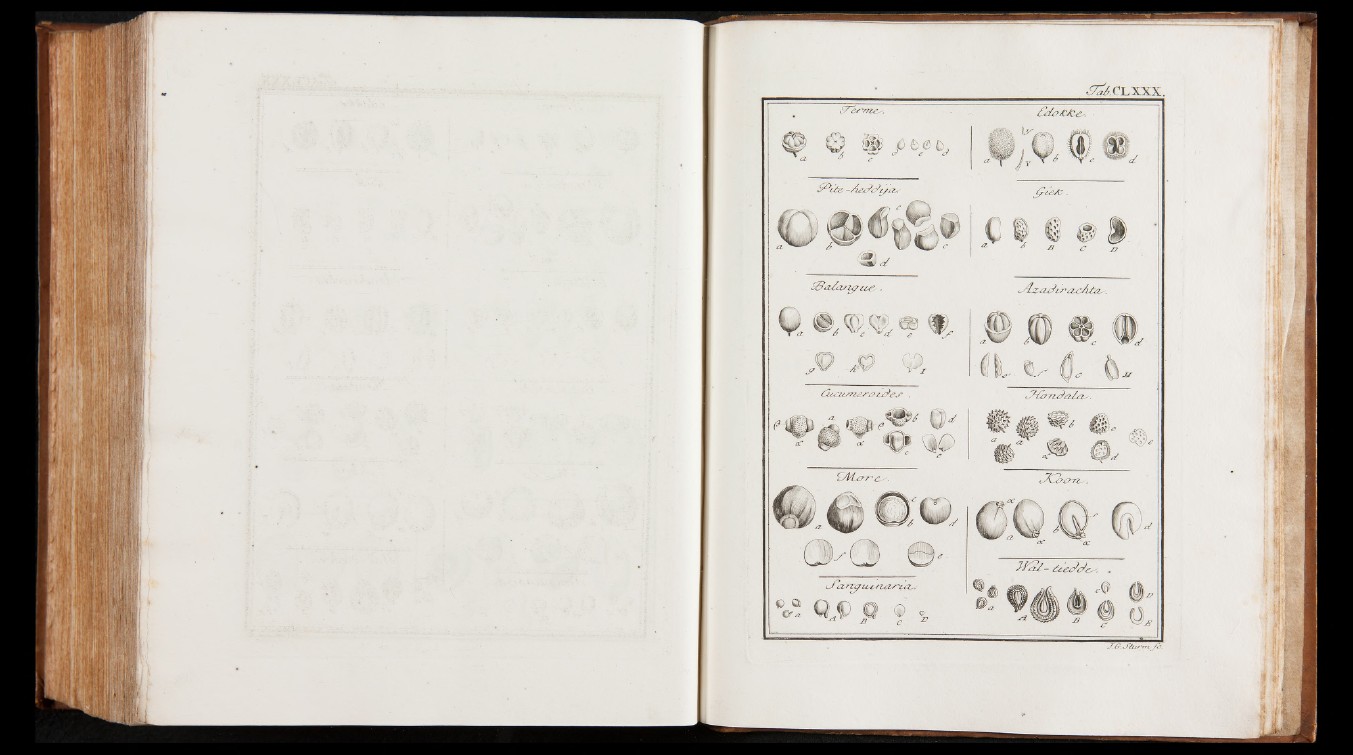 Tab. CLXXX.
Ferme.
a b c
Edokke.
a b c d
Pite-heddija
a b c c d
Giek.
a b B C D
Balangue.
a b c d e f
g h I
Azadirachta.
a b c d
Cucumeroides.
a b c d
Hondala.
a a b c d e
More.
a b c d
f e
Koon.
a α b α d
Sanguinaria
a A B C D
Wal-tiedde.
a A B C D E
J. G. Sturm sc.